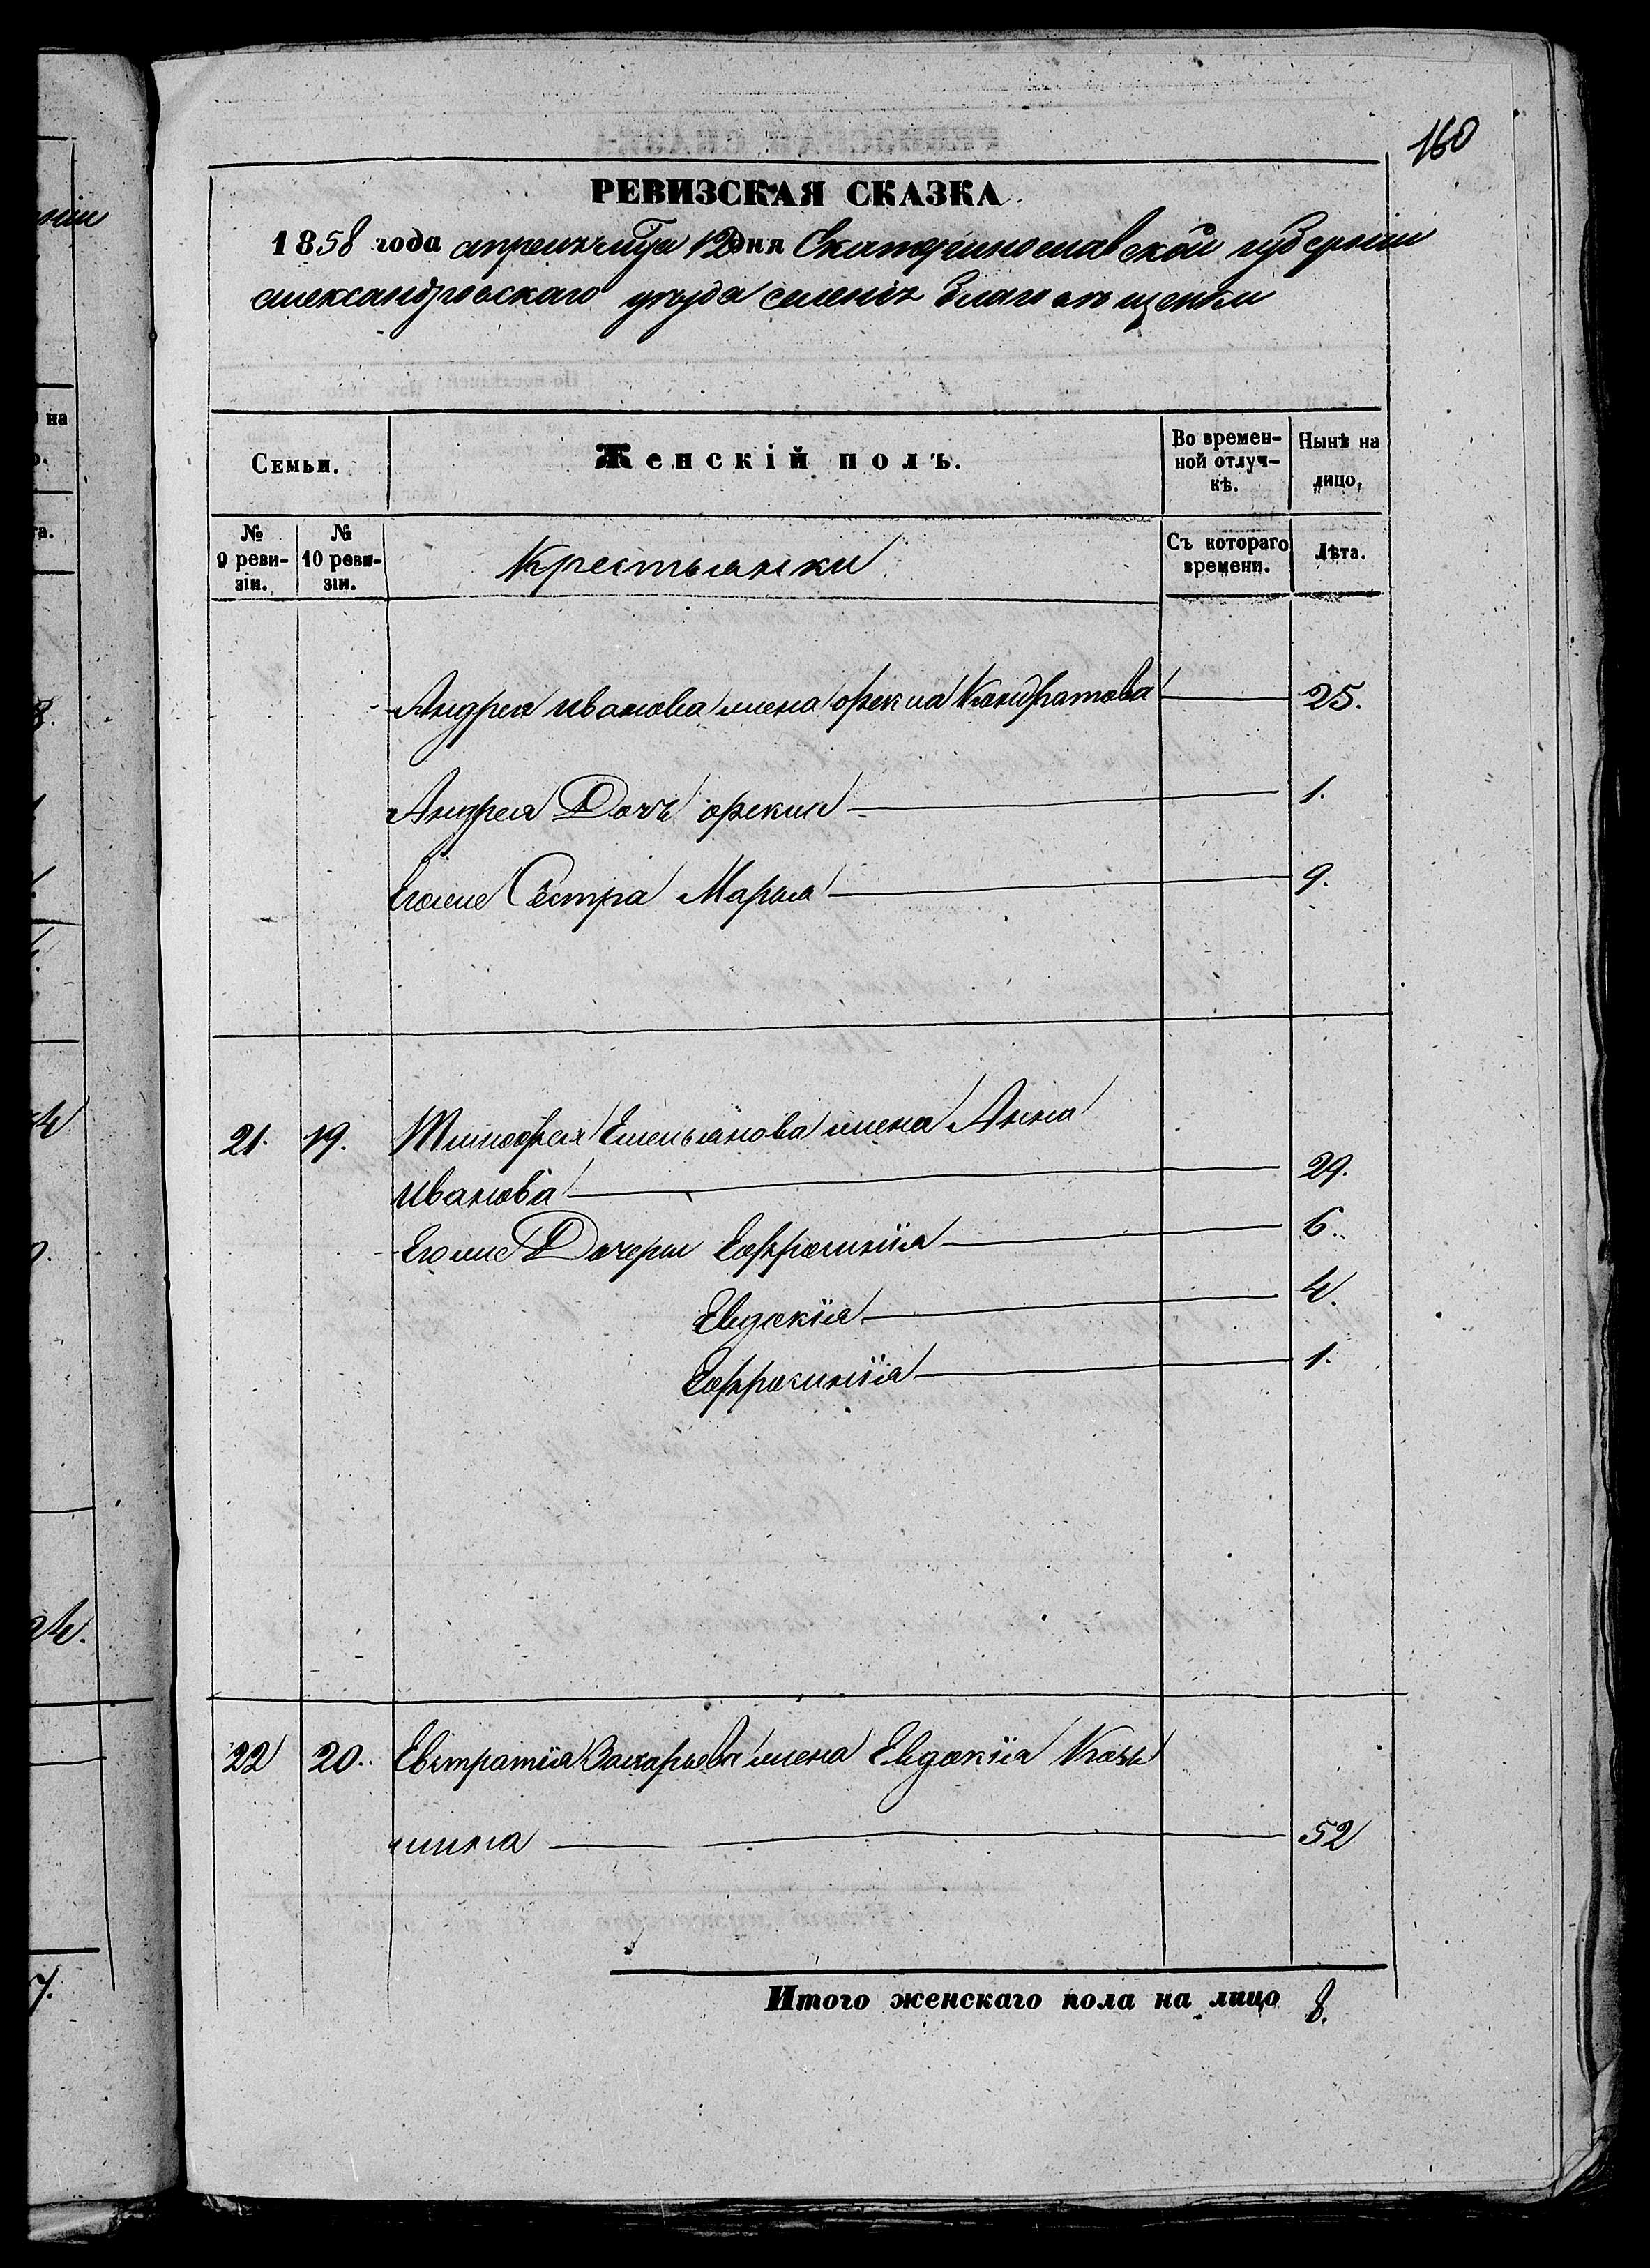 160
РЕВИЗСКАЯ СКАЗКА.
1858 года апреля мца 12 дня Екатеринославской губернии
александровскаго уезда селения благовещенки
Семьи.
Женскій полъ.
Во времен-
ной отлуч-
кѣ.
Нынѣ на
лицо,
№
9 реви-
зіи.
№
10 реви-
зіи.
Крестьянки
Съ котораго
времени.
Лѣта.
Андрея иванова жена фекла Кондратова 25.
Андрея Дочь фекла 1.
Егоже Сестра Марья 9.
21. 19. Тимофея Емельянова жена Анна
иванова 29.
Егоже Дочери Ефросинія 6.
Евдокія 4.
Ефросинія 1.
22 20. Евстратія Захарьева жена Евдокія Козь
мина 52
Итого женскаго пола на лицо 8.
на
та.
7.